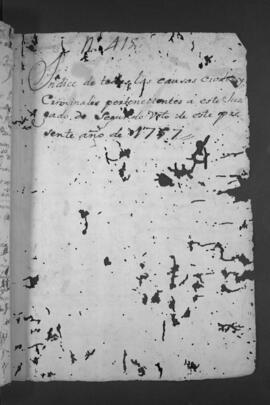 N. 415.
Indice de todas las causas civiles y
Criminales pertenecientes a este Juz
gado de Segundo Voto de este pre
sente año de 1757